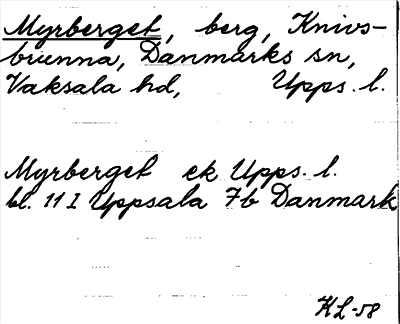 Myrberget, berg, Knivs-
brunna, Danmarks sn,
Vaksala hd, Upps. l.
Myrberget ek Upps. l.
bl. 11 I Uppsala 7b Danmark
KL-58